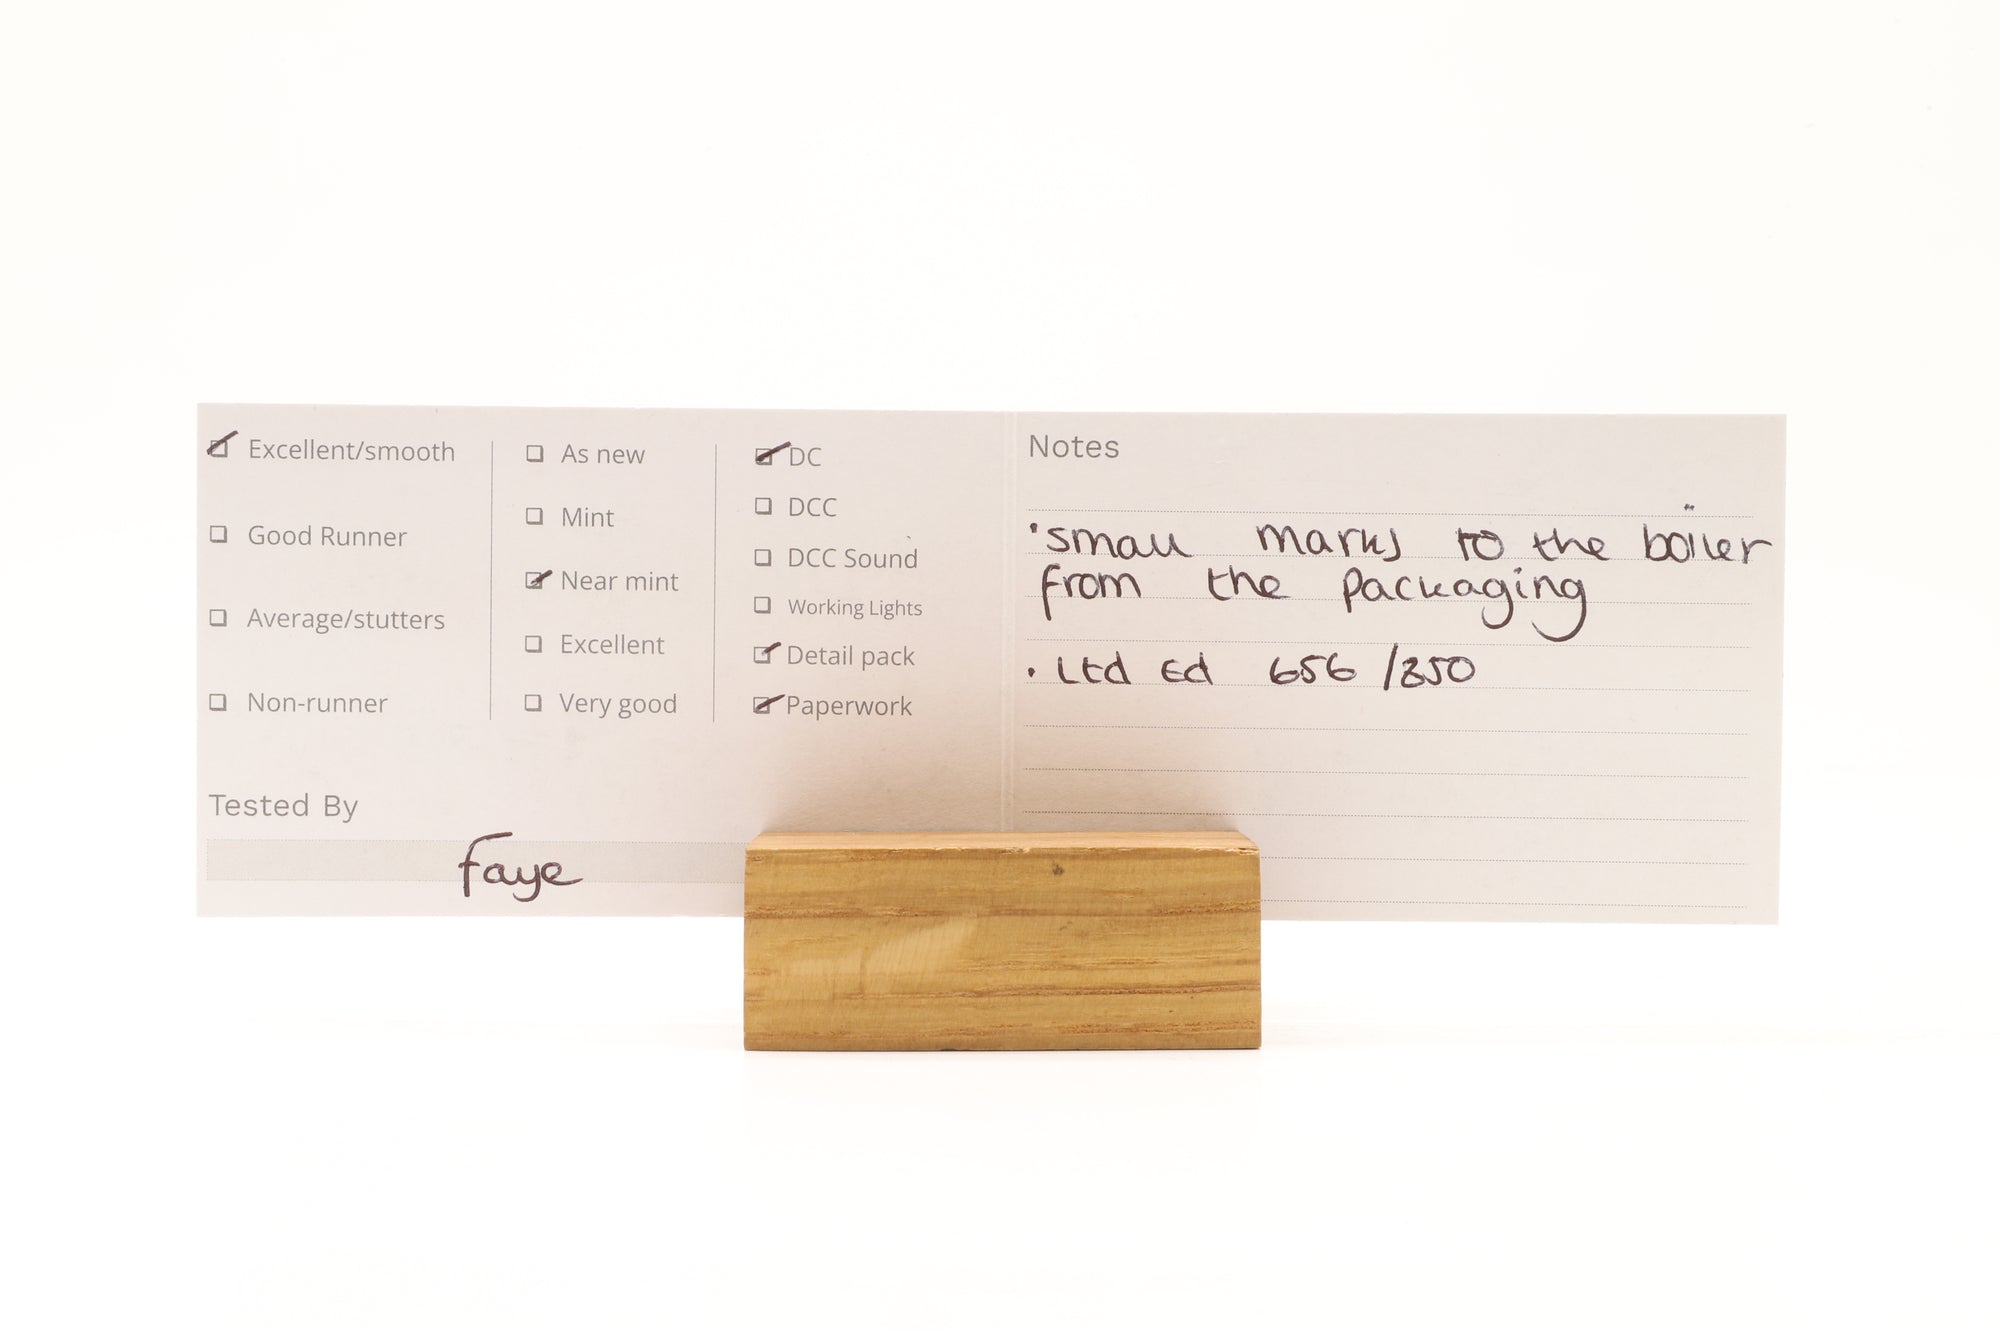 Excellent/smooth
Good Runner
Average/stutters
Non-runner
As new
Mint
Near mint
Excellent
Very good
DC
DCC
DCC Sound
Working Lights
Detail pack
Paperwork
Tested By
Faye
Notes
• small marks to the boiler
from the packaging
• Ltd Ed 656 /850